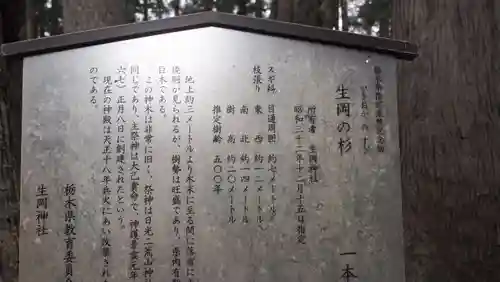 栃木県指定天然記念物
いきおか の すぎ
生岡の杉 一本
所有者 生岡神社
昭和二十二年十二月十五日指定
スギ科 目通周囲 約七メートル
枝張り 東 西 約一二メートル
南 北 約一四メートル
樹 高 約二〇メートル
推定樹齢 五〇〇年
地上約三メートルより木末に至る間に落雷によ
廃朽が見られるが、樹勢は旺盛であり、県内有数
巨木である。
この神木は非常に旧く、祭神は日光二荒山神社
同じであり、主祭神は大己貴命で、神護景雲元年
六七)正月八日に創建されたという。
現在の神殿は天正十八年兵火にあい改築された
のである。
栃木県教育委員会
生岡神社